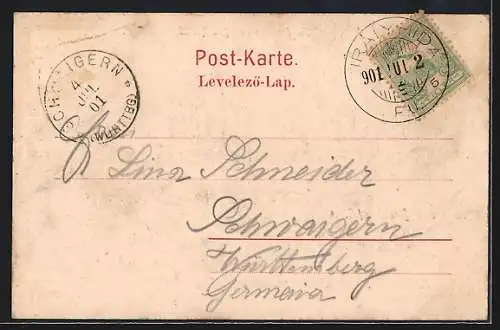 Post-Karte.
Levelező-Lap.
SCHWAIGERN
4
JUL
01
(WÜRTTBG)
901 JUL 2
Lina Schneider
Schwaigern
Württemberg
Germania